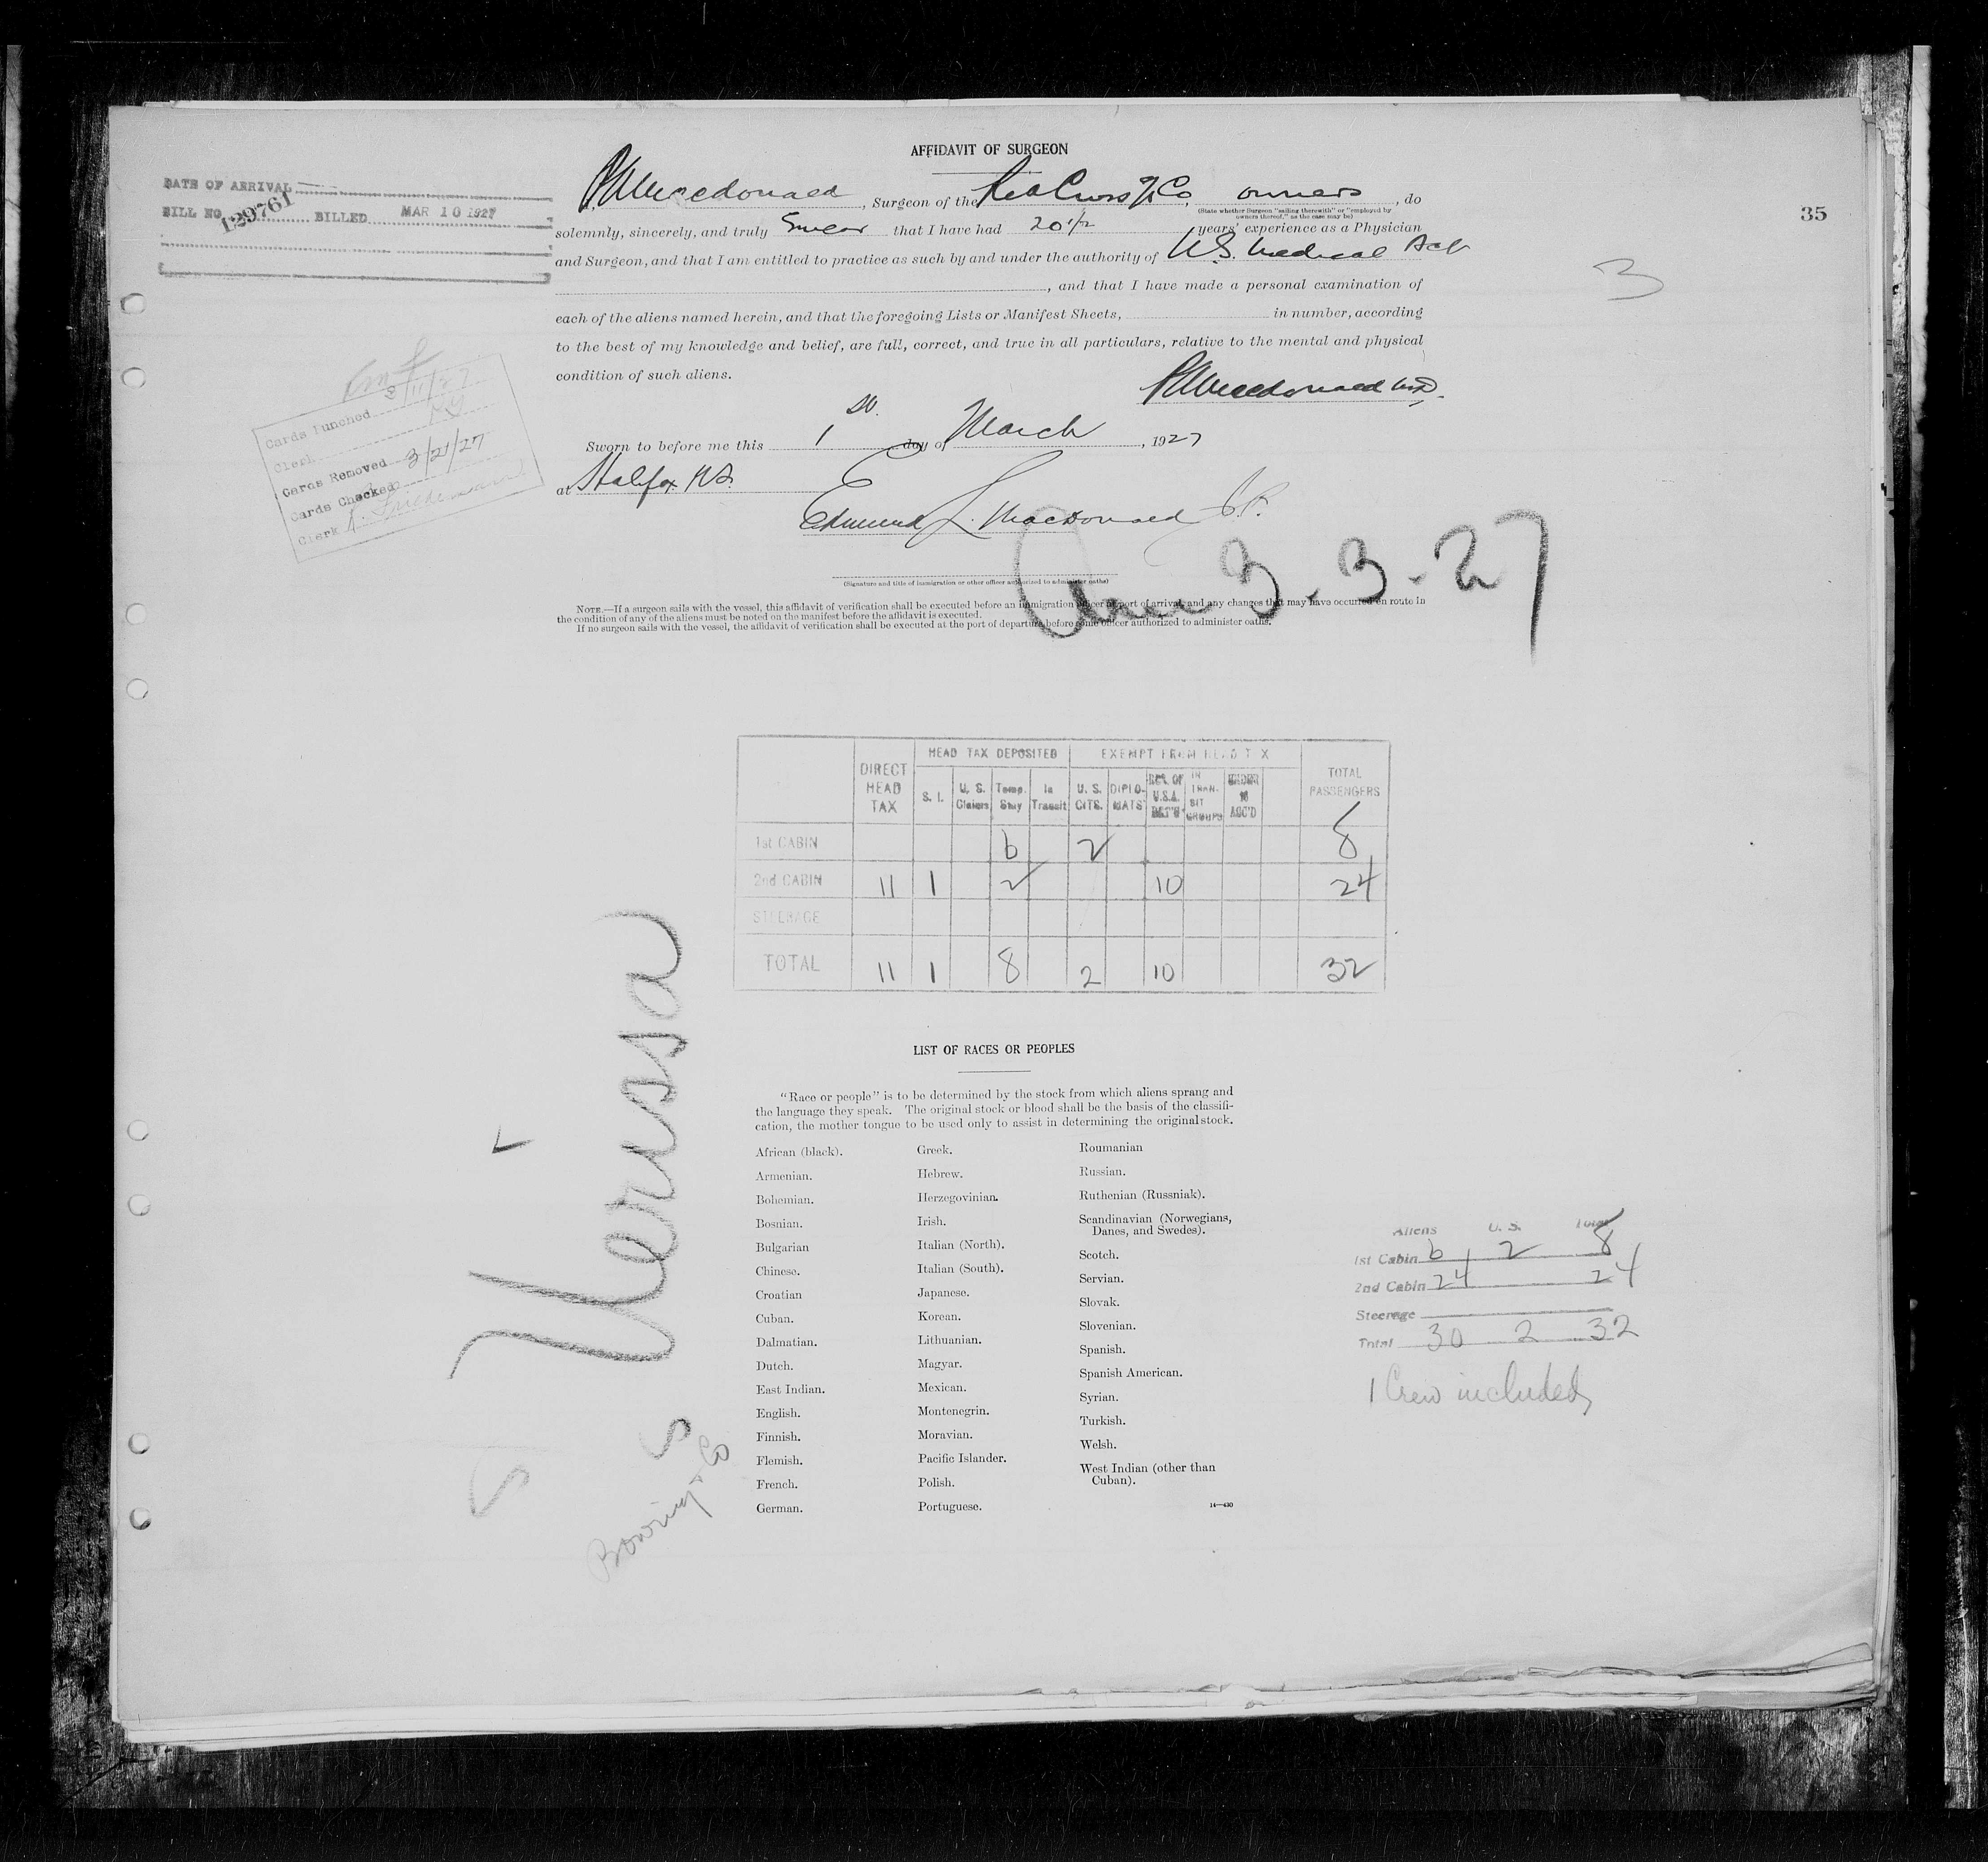 AFFIDAVIT OF SURGEON
DATE OF ARRIVAL
BILL NO. 129761 BILLED MAR 10 1927
35
3
Macdonald, Surgeon of the Red Cross Co, owners, do
(State whether Surgeon "sailing therewith" or "employed by owners thereof," as the case may be)
solemnly, sincerely, and truly Swear that I have had 20 1/2 years' experience as a Physician
and Surgeon, and that I am entitled to practice as such by and under the authority of N.S. Medical Act
, and that I have made a personal examination of
each of the aliens named herein, and that the foregoing Lists or Manifest Sheets, in number, according
to the best of my knowledge and belief, are full, correct, and true in all particulars, relative to the mental and physical
condition of such aliens.
Macdonald MD.
Sworn to before me this 1 st. day of March, 1927
at Halifax N.S.
Edmund L. MacDonald J.P.
(Signature and title of immigration or other officer authorized to administer oaths)
Cards Punched 3/11/27
Clerk
Cards Removed 3/21/27
Cards Checked
Clerk
3.3.27
NOTE.—If a surgeon sails with the vessel, this affidavit of verification shall be executed before an immigration officer at port of arrival, and any changes that may have occurred en route in
the condition of any of the aliens must be noted on the manifest before the affidavit is executed.
If no surgeon sails with the vessel, the affidavit of verification shall be executed at the port of departure before some officer authorized to administer oaths.
HEAD TAX DEPOSITED EXEMPT FROM HEAD TAX
DIRECT HEAD TAX S. I. U. S. Claims Temp. Stay In Transit U. S. CITS. DIPLO-MATS U.S.A. RET'G IN TRAN-SIT GROUPS UNDER 16 ACC'D TOTAL PASSENGERS
1st CABIN 6 2 8
2nd CABIN 11 1 2 10 24
STEERAGE
TOTAL 11 1 8 2 10 32
LIST OF RACES OR PEOPLES
"Race or people" is to be determined by the stock from which aliens sprang and
the language they speak. The original stock or blood shall be the basis of the classifi-
cation, the mother tongue to be used only to assist in determining the original stock.
African (black).
Armenian.
Bohemian.
Bosnian.
Bulgarian
Chinese.
Croatian
Cuban.
Dalmatian.
Dutch.
East Indian.
English.
Finnish.
Flemish.
French.
German.
Greek.
Hebrew.
Herzegovinian.
Irish.
Italian (North).
Italian (South).
Japanese.
Korean.
Lithuanian.
Magyar.
Mexican.
Montenegrin.
Moravian.
Pacific Islander.
Polish.
Portuguese.
Roumanian
Russian.
Ruthenian (Russniak).
Scandinavian (Norwegians,
Danes, and Swedes).
Scotch.
Servian.
Slovak.
Slovenian.
Spanish.
Spanish American.
Syrian.
Turkish.
Welsh.
West Indian (other than
Cuban).
14—430
SS Nerissa
Bowring & Co
Aliens U. S. Total
1st Cabin 6 2 8
2nd Cabin 24 24
Steerage
Total 30 2 32
1 Crew included